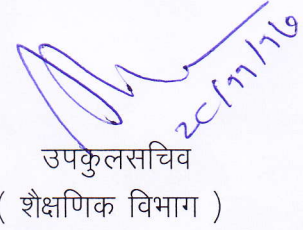 २८/११/१७
उपकुलसचिव
( शैक्षणिक विभाग )